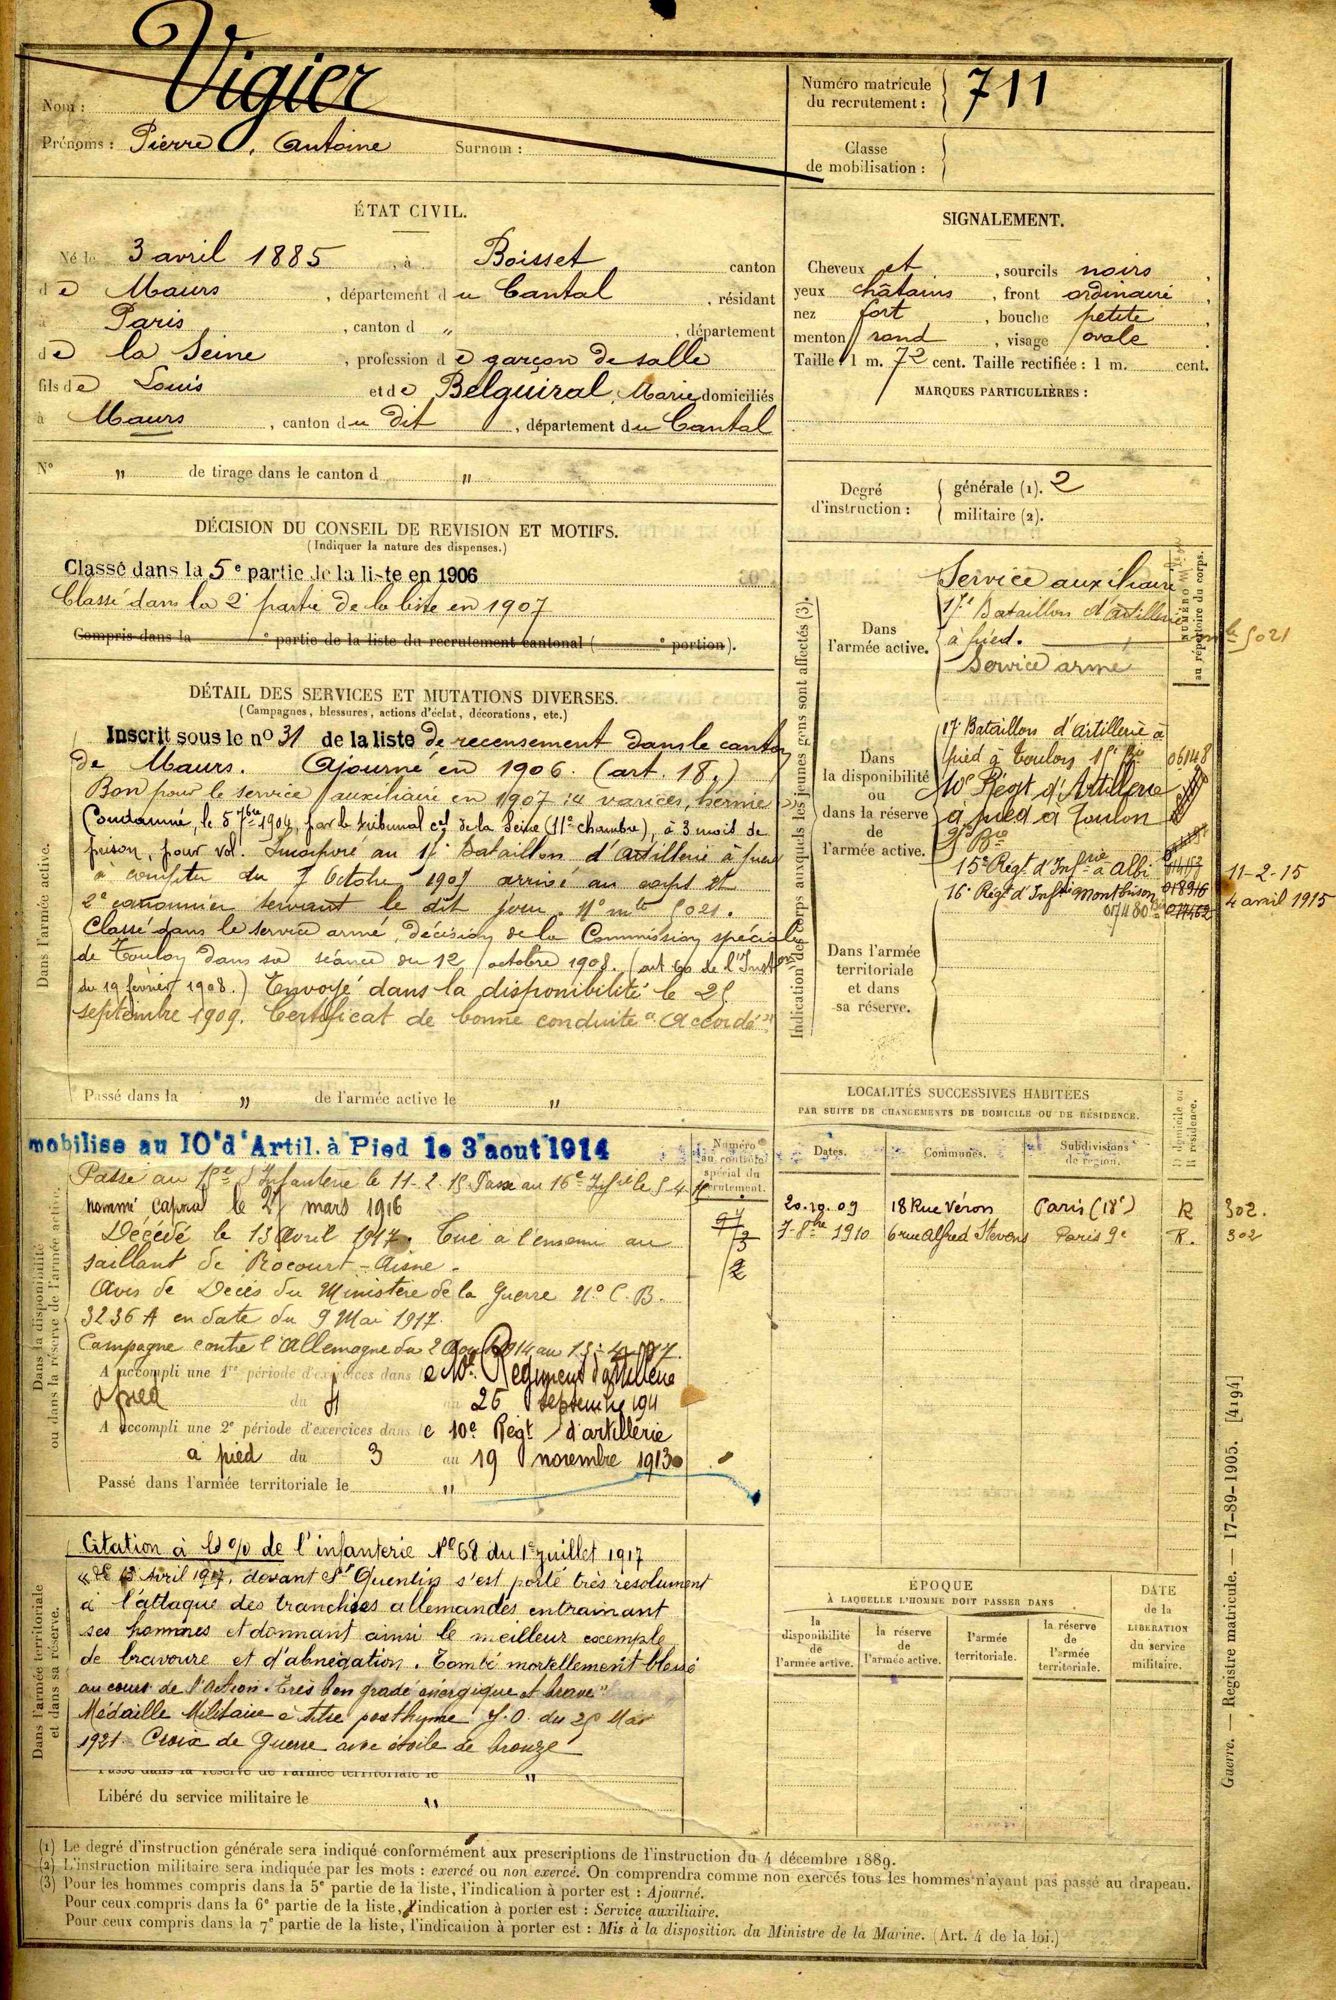 Vigier
Nom :
Prénoms : Pierre, Antoine Surnom :
Numéro matricule
du recrutement : 711
Classe
de mobilisation :
ÉTAT CIVIL.
Né le 3 avril 1885, à Boisset canton
de Maurs, département du Cantal, résidant
à Paris, canton d ", département
de la Seine, profession de garçon de salle
fils de Louis et de Belguiral, Marie domiciliés
à Maurs, canton du dit, département du Cantal
N° " de tirage dans le canton d "
SIGNALEMENT.
Cheveux et, sourcils noirs,
yeux châtains, front ordinaire,
nez fort, bouche petite,
menton rond, visage ovale.
Taille : 1 m. 72 cent. Taille rectifiée : 1 m. cent.
MARQUES PARTICULIÈRES :
Degré
d'instruction :
générale (1). 2
militaire (2).
DÉCISION DU CONSEIL DE REVISION ET MOTIFS.
(Indiquer la nature des dispenses.)
Classé dans la 5e partie de la liste en 1906
Classé dans la 2e partie de la liste en 1907
Compris dans la e partie de la liste du recrutement cantonal ( e portion).
DÉTAIL DES SERVICES ET MUTATIONS DIVERSES.
(Campagnes, blessures, actions d'éclat, décorations, etc.)
Dans l'armée active.
Inscrit sous le no 31 de la liste de recensement dans le canton
de Maurs. Ajourné en 1906. (art. 18.)
Bon pour le service auxiliaire en 1907 : varices, hernie
Condamné, le 5 7bre 1904, par le tribunal cel de la Seine (11e chambre), à 3 mois de
prison, pour vol. Incorporé au 17e Bataillon d'artillerie à pied
à compter du 7 Octobre 1907 arrivé au corps et
2e canonnier servant le dit jour. N° mle 5021.
Classé dans le service armé, décision de la Commission spéciale
de Toulon dans sa séance du 12 octobre 1908. (art 60 de l'Inston
du 19 février 1908.) Envoyé dans la disponibilité le 25
septembre 1909. Certificat de bonne conduite "Accordé"
Passé dans la " de l'armée active le "
Indication des corps auxquels les jeunes gens sont affectés (3).
NUMÉRO
au répertoire du corps.
Dans
l'armée active.
Service auxiliaire
17e Bataillon d'artillerie
à pied. mle 5021
Service armé
Dans
la disponibilité
ou
dans la réserve
de
l'armée active.
17e Bataillon d'artillerie à
pied à Toulon 1re Bie 06148
10e Régt d'Artillerie
à pied à Toulon
2e Bie
15e Régt d'Infrie à Albi 11-2-15
16e Régt d'Infrie Montbrison 018916 4 avril 1915
017480 bis 017462
Dans l'armée
territoriale
et dans
sa réserve.
Dans la disponibilité
ou dans la réserve de l'armée active.
mobilise au 10e d'Artil. à Pied le 3 aout 1914
Numéro
au contrôle
spécial du
recrutement.
97
3
2
Passé au 15e d'Infanterie le 11-2-15 Passé au 16e Infie le 5-4-15
nommé caporal le 27 mars 1916
Décédé le 13 Avril 1917. Tué à l'ennemi au
saillant de Rocourt - Aisne -
Avis de Décès du Ministère de la Guerre N° C.B.
3236 A en date du 9 Mai 1917.
Campagne contre l'Allemagne du 2 Aout 1914 au 13-4-17.
A accompli une 1re période d'exercices dans le 10e Régiment d'artillerie
à pied du 4 au 26 septembre 1911
A accompli une 2e période d'exercices dans le 10e Régt d'artillerie
à pied du 3 au 19 novembre 1913
Passé dans l'armée territoriale le "
LOCALITÉS SUCCESSIVES HABITÉES
PAR SUITE DE CHANGEMENTS DE DOMICILE OU DE RÉSIDENCE.
Dates. Communes. Subdivisions de région. D domicile ou R résidence.
20.10.09 18 Rue Véron Paris (18e) R 302.
7-8bre 1910 6 rue Alfred Stevens Paris 9e R. 302
Dans l'armée territoriale
et dans sa réserve.
Citation à l'o/o de l'infanterie N° 68 du 1er juillet 1917
"Le 13 Avril 1917, devant St Quentin s'est porté très résolument
à l'attaque des tranchées allemandes entrainant
ses hommes et donnant ainsi le meilleur exemple
de bravoure et d'abnégation. Tombé mortellement blessé
au cours de l'action. Très bon gradé énergique et brave"
Médaille Militaire à titre posthume J.O. du 25 Mai
1921. Croix de Guerre avec étoile de bronze
Passé dans la réserve de l'armée territoriale le "
Libéré du service militaire le "
ÉPOQUE
À LAQUELLE L'HOMME DOIT PASSER DANS
la disponibilité de l'armée active.
la réserve de l'armée active.
l'armée territoriale.
la réserve de l'armée territoriale.
DATE
de la
LIBÉRATION
du service
militaire.
Guerre. — Registre matricule. — 17-89-1905. [4194]
(1) Le degré d'instruction générale sera indiqué conformément aux prescriptions de l'instruction du 4 décembre 1889.
(2) L'instruction militaire sera indiquée par les mots : exercé ou non exercé. On comprendra comme non exercés tous les hommes n'ayant pas passé au drapeau.
(3) Pour les hommes compris dans la 5e partie de la liste, l'indication à porter est : Ajourné.
Pour ceux compris dans la 6e partie de la liste, l'indication à porter est : Service auxiliaire.
Pour ceux compris dans la 7e partie de la liste, l'indication à porter est : Mis à la disposition du Ministre de la Marine. (Art. 4 de la loi.)